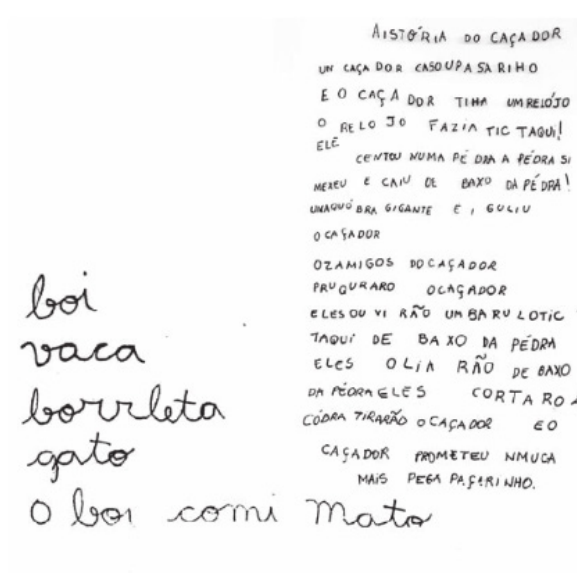 AISTÓRIA DO CAÇADOR
UN CAÇA DOR CASOUPASARIHO
E O CAÇA DOR TIHA UMRELÓJO
O RELOJO FAZIA TIC TAQUI!
ELE
CENTOU NUMA PÉ DRA A PÉDRA SI
MEXEU E CAIU DE BAXO DA PÉDRA!
UNAQUÓBRA GIGANTE E I GULIU
O CAÇADOR
OZAMIGOS DO CAÇADOR
PRUQURARO OCAÇADOR
ELES OU VI RÃO UM BARU LOTIC
TAQUI DE BA XO DA PÉDRA
ELES OLIA RÃO DE BAXO
DA PÉDRA ELES CORTA RO A
CÓBRA TIRARÃO O CAÇADOR E O
CAÇADOR PROMETEU NMUCA
MAIS PEGA PAÇARINHO.
boi
vaca
borrleta
gato
O boi comi Mato